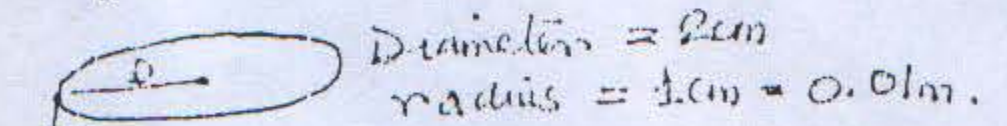 Diameter = 2cm
radius = 1cm = 0.01m.